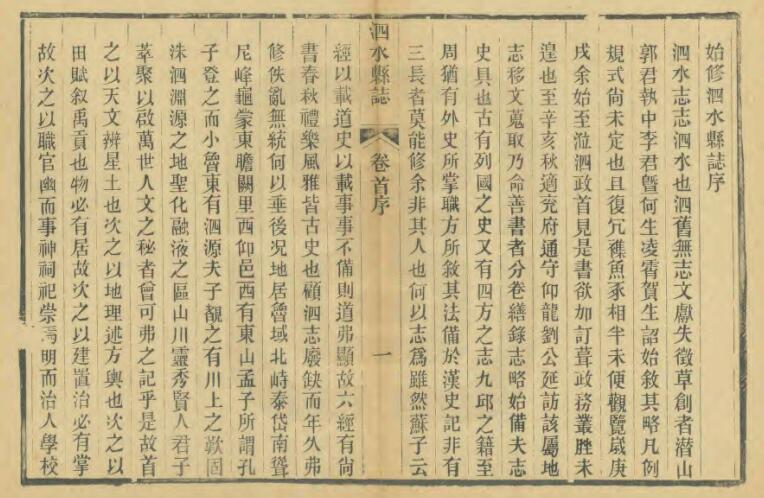 始修泗水縣誌序
泗水志志泗水也泗舊無志文獻失徵草創者潜山
郭君執中李君曁何生凌霄賀生詔始敘其略凡例
規式尚未定也且復冗襍魚豕相半未便觀覽嵗庚
戌余始至涖泗政首見是書欲加訂葺政務叢脞未
遑也至辛亥秋適兖府通守仰龍劉公延訪該屬地
志移文蒐取乃命善書者分卷繕錄志略始備夫志
史具也古有列國之史又有四方之志九邱之籍至
周猶有外史所掌職方所敘其法備於漢史記非有
三長者莫能修余非其人也何以志爲雖然蘇子云
泗水縣誌
卷首序
一
經以載道史以載事事不備則道弗顯故六經有尙
書春秋禮樂風雅皆古史也顧泗志廢缺而年久弗
修佚亂無統何以垂後况地居魯域北峙泰岱南聳
尼峰龜蒙東瞻闕里西仰邑西有東山孟子所謂孔
子登之而小魯東有泗源夫子觀之有川上之歎固
洙泗淵源之地聖化融液之區山川靈秀賢人君子
萃聚以啟萬世人文之秘者曾可弗之記乎是故首
之以天文辨星土也次之以地理述方輿也次之以
田賦叙禹貢也物必有居故次之以建置治必有掌
故次之以職官幽而事神祠祀崇焉明而治人學校